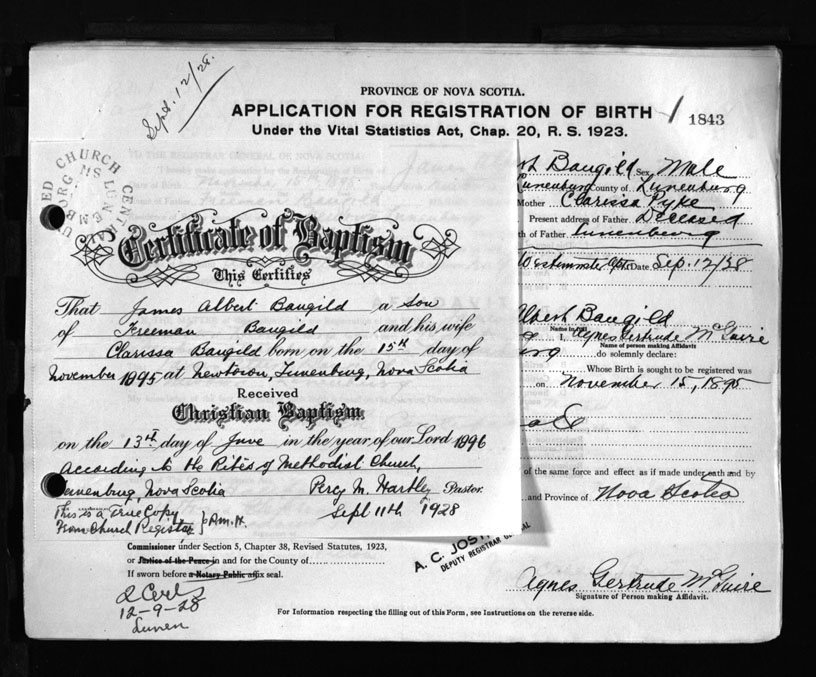 Sept. 12/28.
PROVINCE OF NOVA SCOTIA.
APPLICATION FOR REGISTRATION OF BIRTH
1843
Under the Vital Statistics Act, Chap. 20, R. S. 1923.
TO THE REGISTRAR GENERAL OF NOVA SCOTIA:
UNITED CHURCH CENTRAL LUNENBURG NS
Baugild Sex Male
Lunenburg County of Lunenburg
Mother Clarissa Pyke
Present address of Father Deceased
th of Father Lunenburg
Date Sep. 12/28
Certificate of Baptism
This Certifies
That James Albert Baugild a son
of Freeman Baugild and his wife
Clarissa Baugild born on the 15th day of
November 1895 at Newtown, Lunenburg, Nova Scotia
Received
Christian Baptism
on the 13th day of June in the year of our Lord 1896
According to the Rites of Methodist Church,
Lunenburg, Nova Scotia Percy M. Hartley Pastor.
Sept 11th 1928
This is a True Copy
From Church Register } P.M.H.
Albert Baugild
Name in full
I, Agnes Gertrude McGuire
Name of person making Affidavit
do solemnly declare:
Whose Birth is sought to be registered was
on November 15, 1895
of the same force and effect as if made under oath and by
and Province of Nova Scotia
A. C. JOST
DEPUTY REGISTRAR GENERAL
Commissioner under Section 5, Chapter 38, Revised Statutes, 1923,
or Justice of the Peace in and for the County of
If sworn before a Notary Public affix seal.
12-9-28
Lunen
Agnes Gertrude McGuire
Signature of Person making Affidavit.
For Information respecting the filling out of this Form, see Instructions on the reverse side.